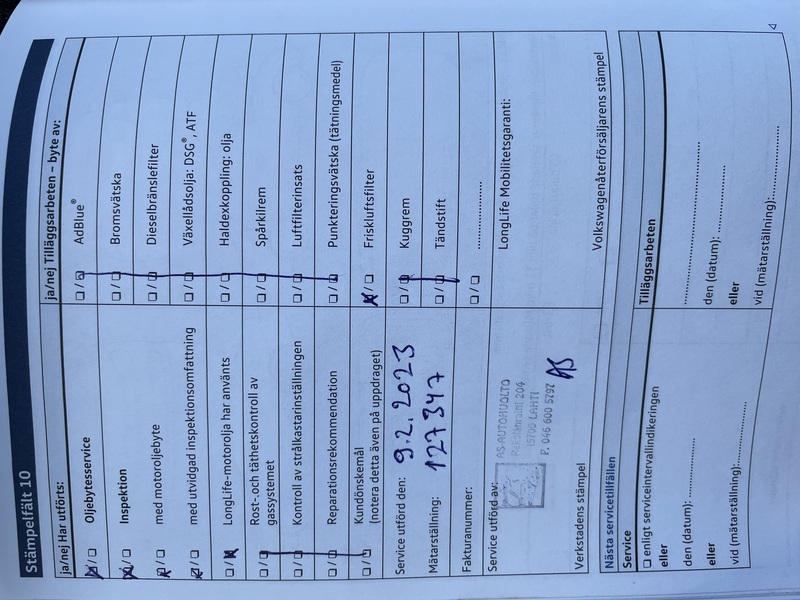 Stämpelfält 10
ja/nej Har utförts:
☒ / ☐ Oljebytesservice
☒ / ☐ Inspektion
☒ / ☐ med motoroljebyte
☒ / ☐ med utvidgad inspektionsomfattning
☐ / ☒ LongLife-motorolja har använts
☐ / ☐ Rost-.och täthetskontroll av
gassystemet
☐ / ☐ Kontroll av strålkastarinställningen
☐ / ☐ Reparationsrekommendation
☐ / ☐ Kundönskemål
(notera detta även på uppdraget)
Service utförd den: 9.2.2023
Mätarställning: 127347
Fakturanummer:
Service utförd av:
AS AUTOHUOLTO
204
15700 LAHTI
P. 046 600 5797
AS
Verkstadens stämpel
ja/nej Tilläggsarbeten – byte av:
☐ / ☐ AdBlue®
☐ / ☐ Bromsvätska
☐ / ☐ Dieselbränslefilter
☐ / ☐ Växellådsolja: DSG®, ATF
☐ / ☐ Haldexkoppling: olja
☐ / ☐ Spårkilrem
☐ / ☐ Luftfilterinsats
☐ / ☐ Punkteringsvätska (tätningsmedel)
☒ / ☐ Friskluftsfilter
☐ / ☐ Kuggrem
☐ / ☐ Tändstift
☐ / ☐ ....................
LongLife Mobilitetsgaranti:
Volkswagenåterförsäljarens stämpel
Nästa servicetillfällen
Service
☐ enligt serviceintervallindikeringen
eller
den (datum): ....................
eller
vid (mätarställning):....................
Tilläggsarbeten
........................................
den (datum): ....................
eller
vid (mätarställning):....................